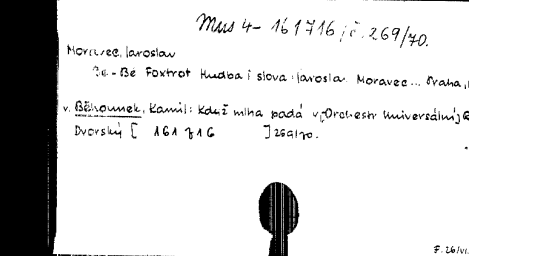 Mus 4 - 161716 / č. 269/70.
Moravec, Jaroslav
Be - Be Foxtrot Hudba i slova: Jarosla. Moravec... Praha,
v. Běhounek, Kamil: Když mlha padá v. Orchestr Universální G
Dvorský [ 161 716 ] 269/70.
F. 26/VI.